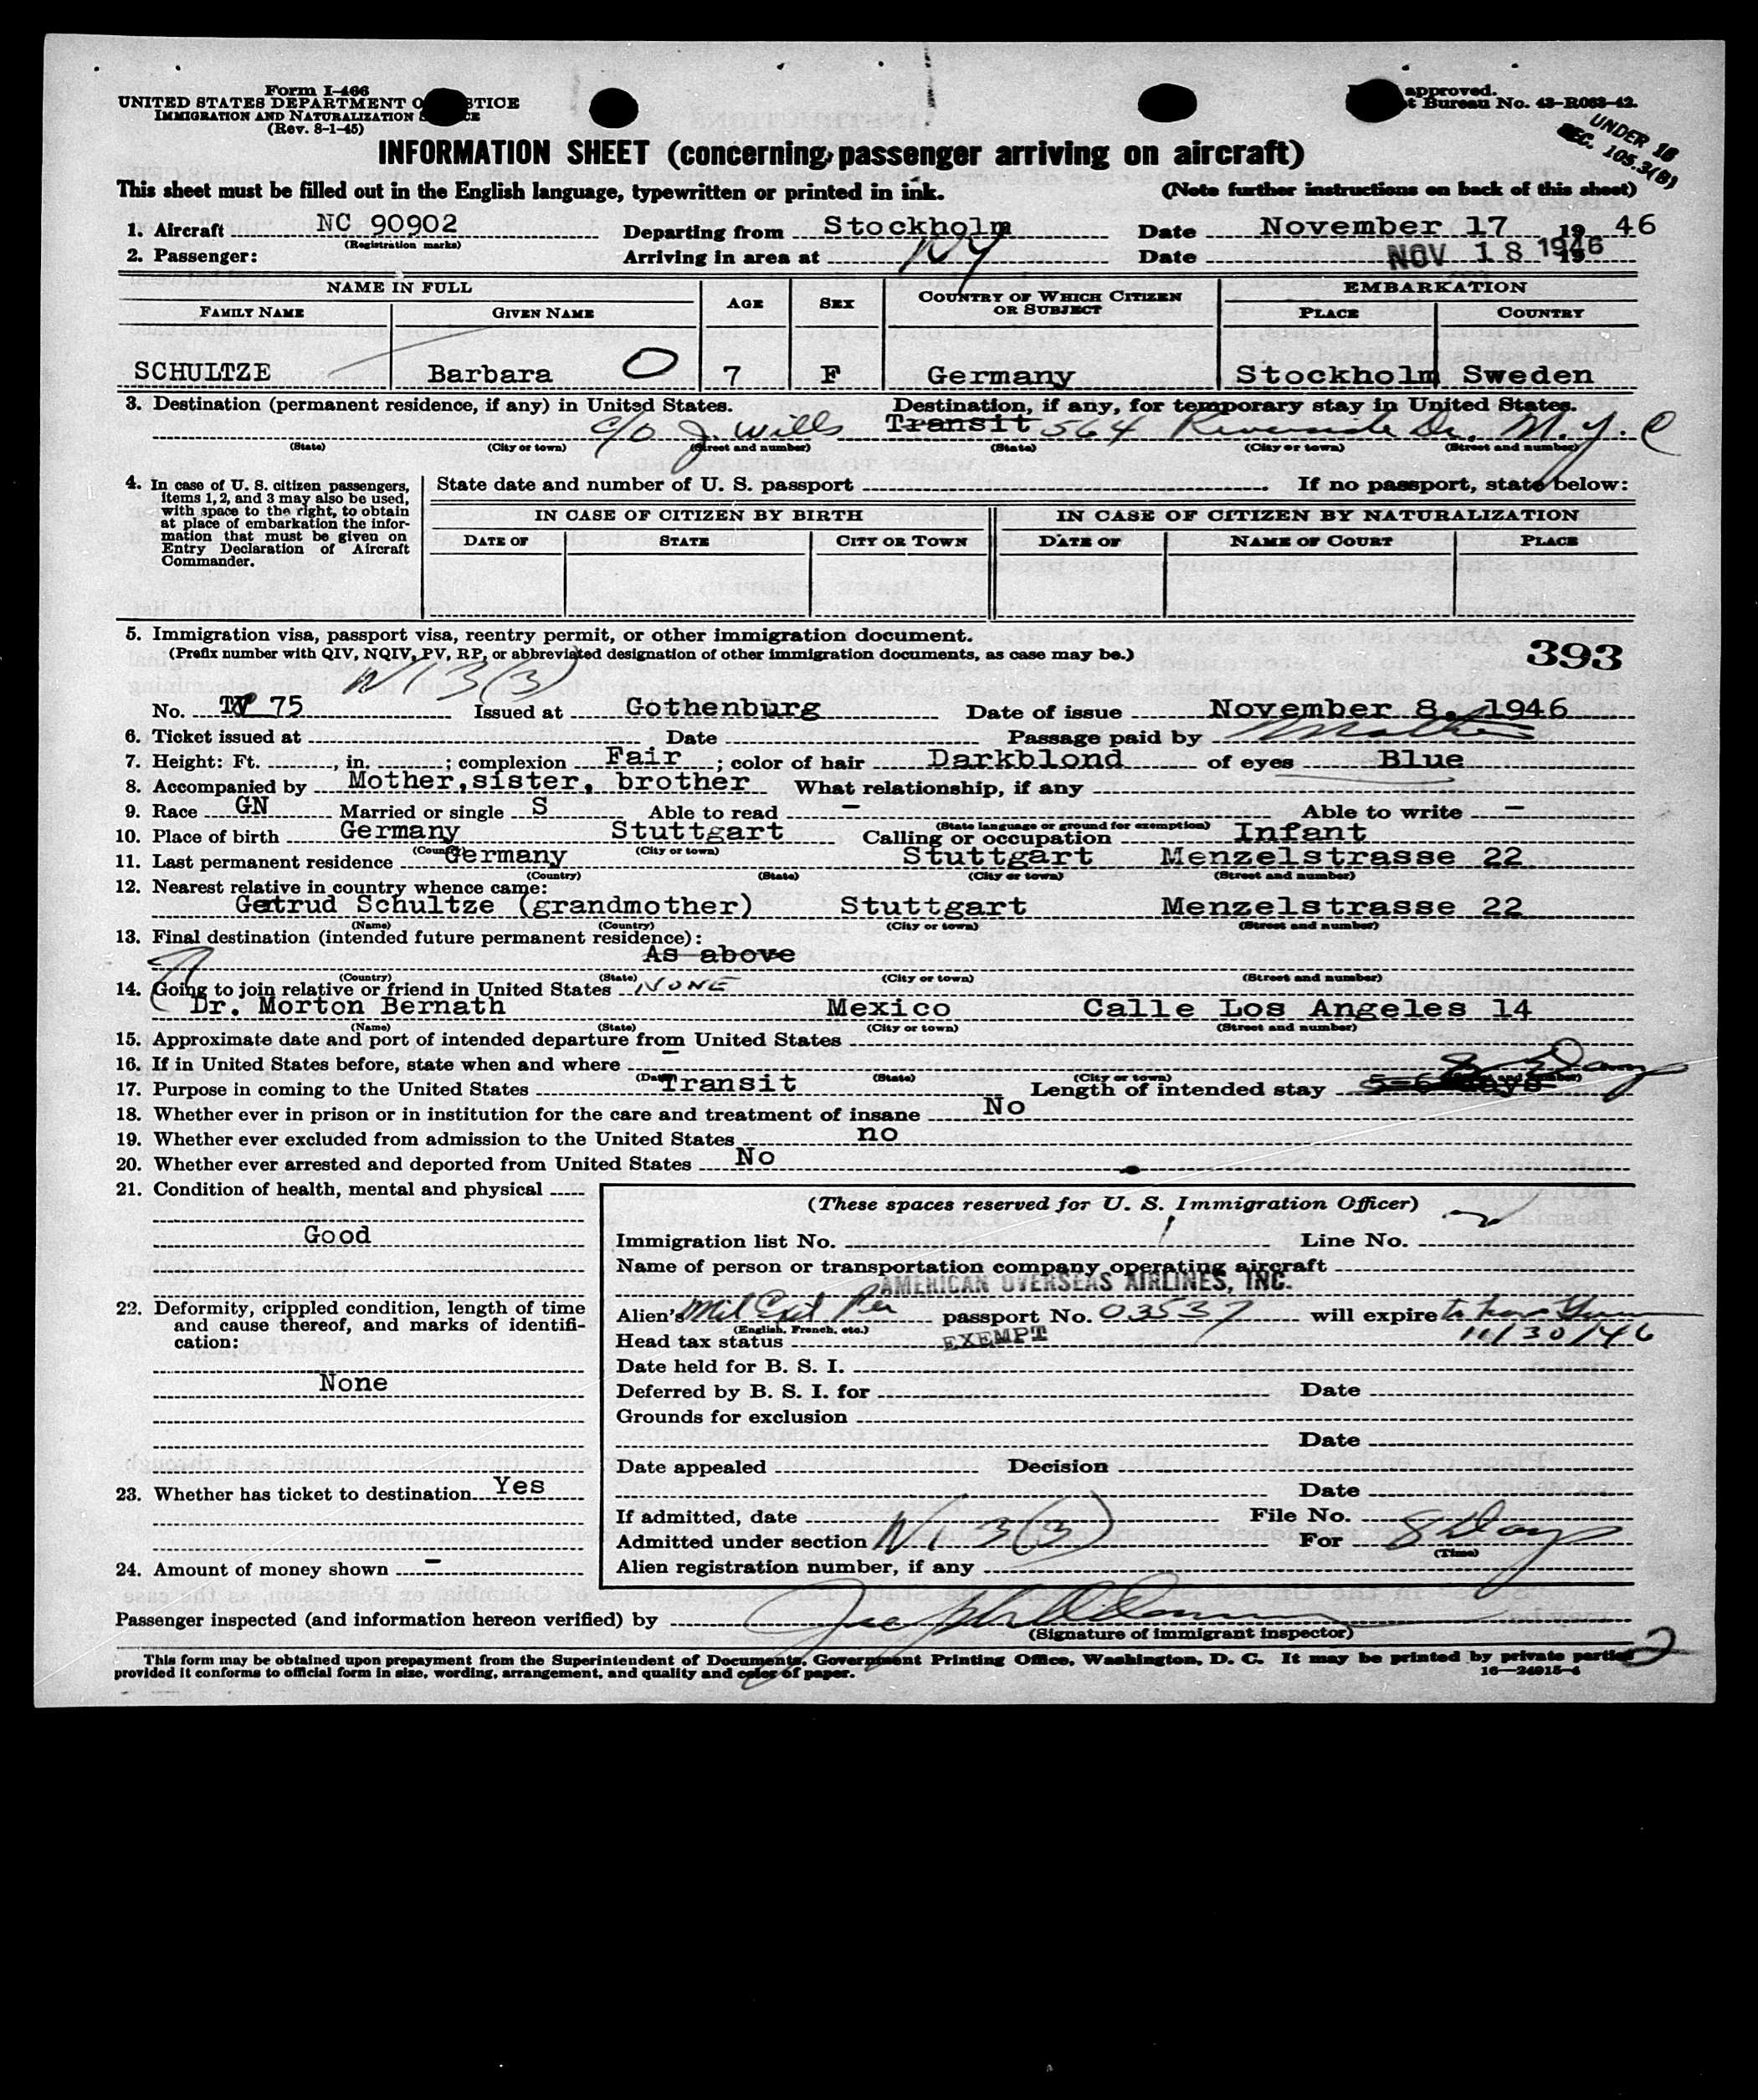 Form I-466
UNITED STATES DEPARTMENT O STICE
IMMIGRATION AND NATURALIZATION S CE
(Rev. 8-1-45)
approved.
t Bureau No. 43-R063-42.
UNDER 16
SEC. 105.3(B)
INFORMATION SHEET (concerning passenger arriving on aircraft)
This sheet must be filled out in the English language, typewritten or printed in ink. (Note further instructions on back of this sheet)
1. Aircraft NC 90902 Departing from Stockholm Date November 17 19 46
(Registration marks)
2. Passenger: Arriving in area at NY Date NOV 18 1946 19
NAME IN FULL AGE SEX COUNTRY OF WHICH CITIZEN OR SUBJECT EMBARKATION
FAMILY NAME GIVEN NAME PLACE COUNTRY
SCHULTZE Barbara O 7 F Germany Stockholm Sweden
3. Destination (permanent residence, if any) in United States. Destination, if any, for temporary stay in United States.
C/O J. Wills Transit 564 Riverside Dr. N.Y.C
(State) (City or town) (Street and number) (State) (City or town) (Street and number)
4. In case of U. S. citizen passengers, items 1, 2, and 3 may also be used, with space to the right, to obtain at place of embarkation the information that must be given on Entry Declaration of Aircraft Commander.
State date and number of U. S. passport . If no passport, state below:
IN CASE OF CITIZEN BY BIRTH IN CASE OF CITIZEN BY NATURALIZATION
DATE OF STATE CITY OR TOWN DATE OF NAME OF COURT PLACE
5. Immigration visa, passport visa, reentry permit, or other immigration document.
(Prefix number with QIV, NQIV, PV, RP, or abbreviated designation of other immigration documents, as case may be.) 393
N13(3)
No. 75 Issued at Gothenburg Date of issue November 8, 1946
6. Ticket issued at Date Passage paid by Mother
7. Height: Ft. , in. ; complexion Fair ; color of hair Darkblond of eyes Blue
8. Accompanied by Mother, sister, brother What relationship, if any
9. Race GN Married or single S Able to read - Able to write -
(State language or ground for exemption)
10. Place of birth Germany Stuttgart Calling or occupation Infant
(Country) (City or town)
11. Last permanent residence Germany Stuttgart Menzelstrasse 22
(Country) (State) (City or town) (Street and number)
12. Nearest relative in country whence came:
Getrud Schultze (grandmother) Stuttgart Menzelstrasse 22
(Name) (Country) (City or town) (Street and number)
13. Final destination (intended future permanent residence):
As above
(Country) (State) (City or town) (Street and number)
14. Going to join relative or friend in United States NONE
Dr. Morton Bernath Mexico Calle Los Angeles 14
(Name) (State) (City or town) (Street and number)
15. Approximate date and port of intended departure from United States
16. If in United States before, state when and where -
(Date) (State) (City or town) (Street and number)
17. Purpose in coming to the United States Transit Length of intended stay 5-6 days 8 Days
18. Whether ever in prison or in institution for the care and treatment of insane No
19. Whether ever excluded from admission to the United States no
20. Whether ever arrested and deported from United States No
21. Condition of health, mental and physical
Good
22. Deformity, crippled condition, length of time and cause thereof, and marks of identification:
None
23. Whether has ticket to destination Yes
24. Amount of money shown -
(These spaces reserved for U. S. Immigration Officer)
Immigration list No. 1 Line No. 2
Name of person or transportation company operating aircraft
AMERICAN OVERSEAS AIRLINES, INC.
Alien's Mil Exit Per passport No. 03537 will expire
(English, French, etc.) 11/30/46
Head tax status EXEMPT
Date held for B. S. I.
Deferred by B. S. I. for Date
Grounds for exclusion
Date
Date appealed Decision
Date
If admitted, date File No.
Admitted under section N 1 3(3) For 8 Days
(Time)
Alien registration number, if any
Passenger inspected (and information hereon verified) by
(Signature of immigrant inspector)
2
This form may be obtained upon prepayment from the Superintendent of Documents, Government Printing Office, Washington, D. C. It may be printed by private parties
provided it conforms to official form in size, wording, arrangement, and quality and color of paper. 16—24915-4